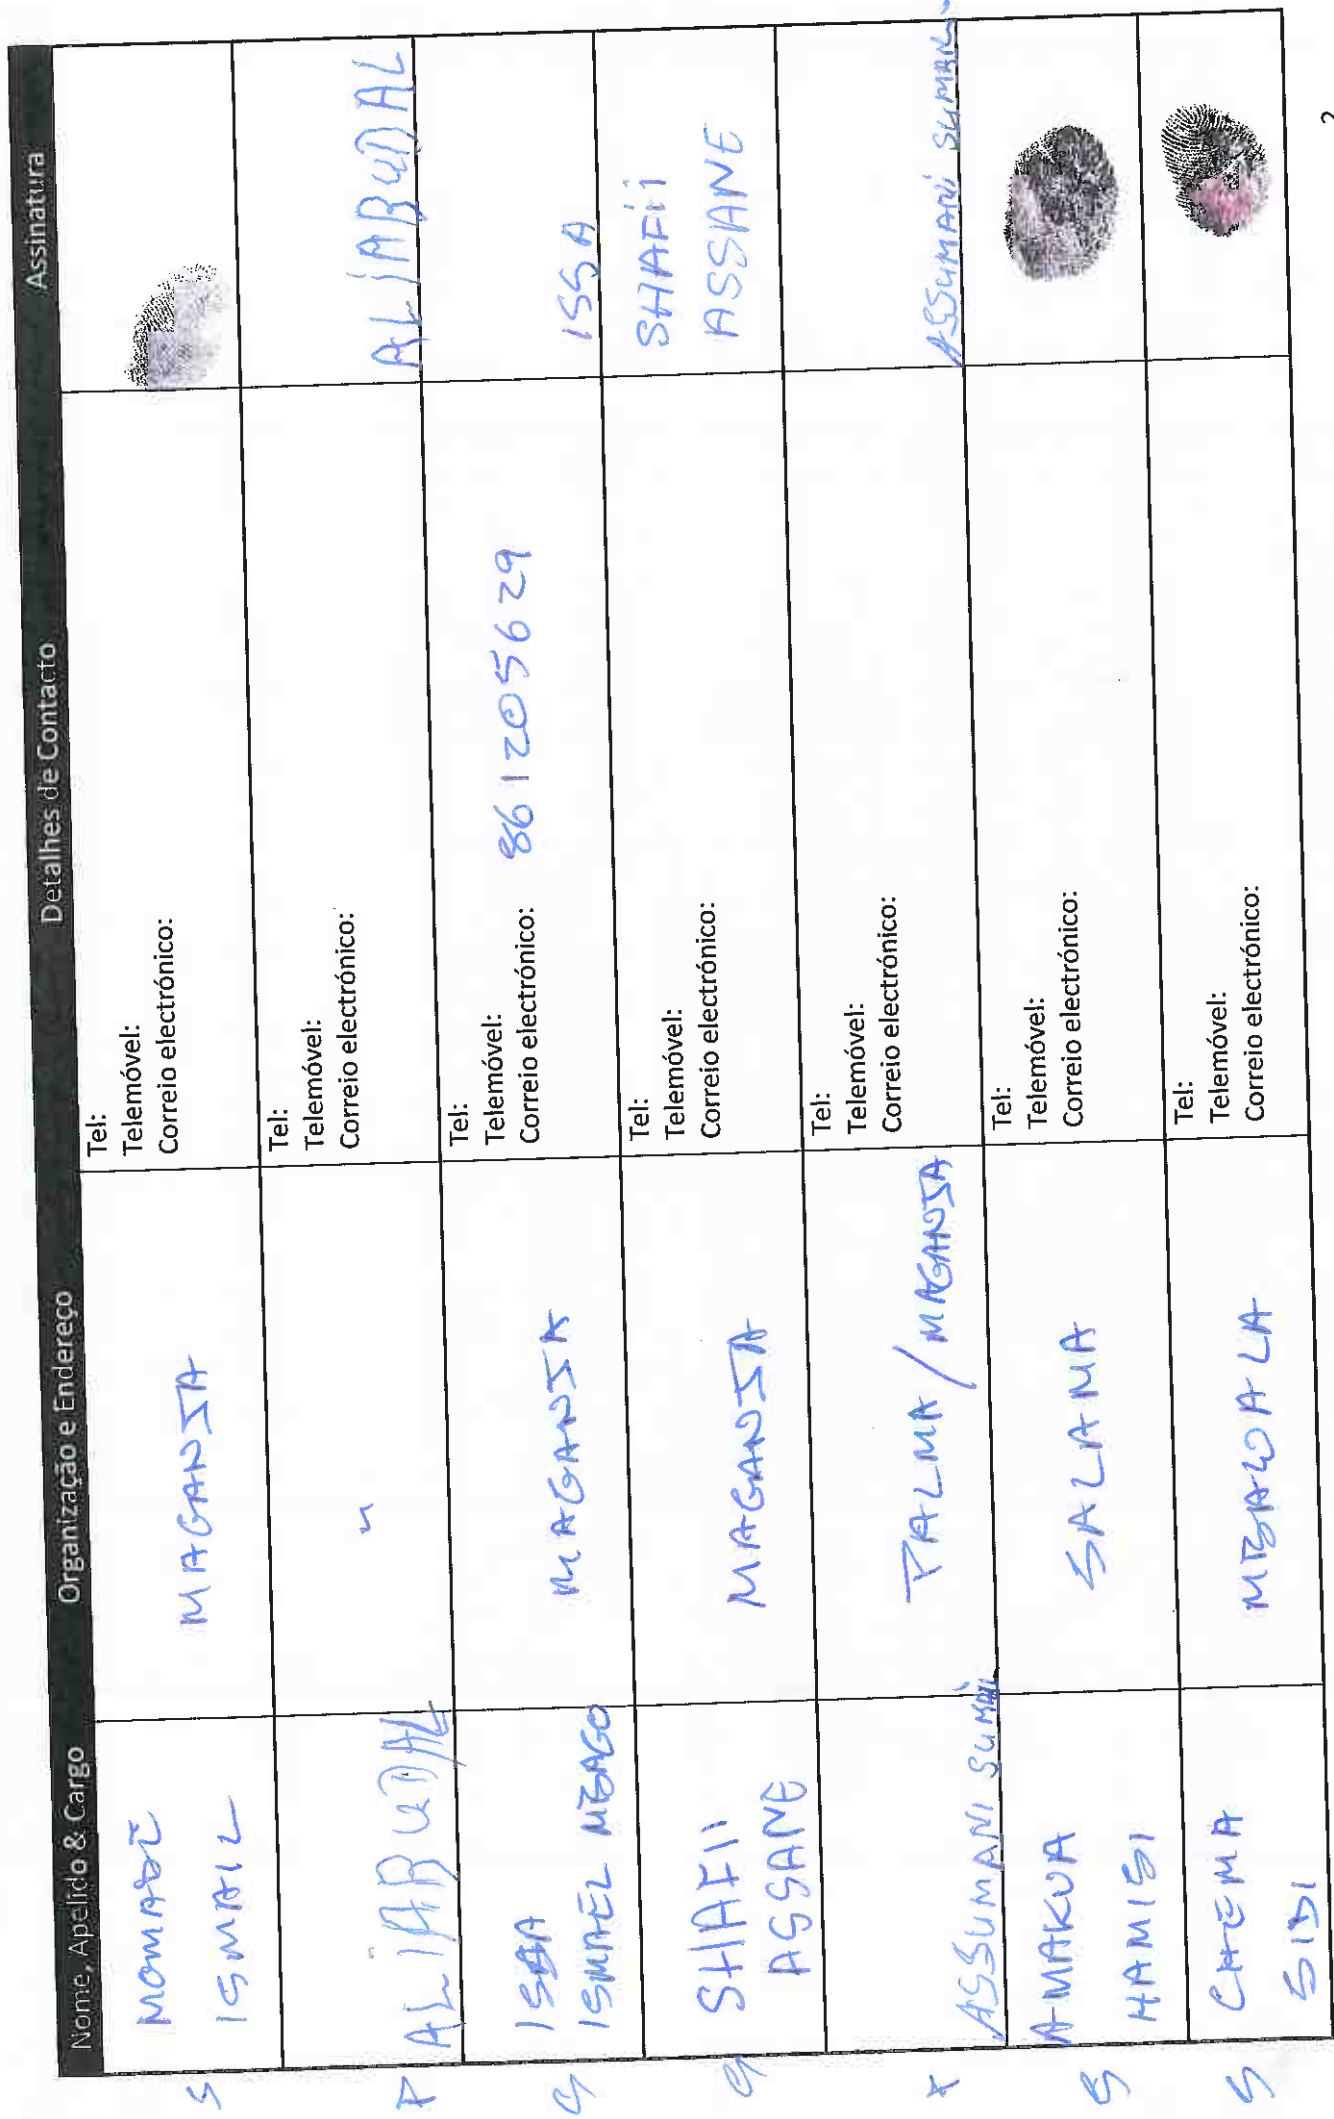 Nome, Apelido & Cargo Organização e Endereço Detalhes de Contacto Assinatura
S MOMADE ISMAIL
MAGANJA
Tel:
Telemóvel:
Correio electrónico:
P ALIABUDAL
"
Tel:
Telemóvel:
Correio electrónico:
ALIABUDAL
ISSA
ISMAEL MBAGO
MAGANJA
Tel:
Telemóvel:
Correio electrónico: 861205629
ISSA
SHAFII
ASSANE
MAGANJA
Tel:
Telemóvel:
Correio electrónico:
SHAFII
ASSANE
ASSUMANI SUMANI
PALMA / MAGANJA
Tel:
Telemóvel:
Correio electrónico:
ASSUMANI SUMANI
S AMAKUA
HAMISI
SALAMA
Tel:
Telemóvel:
Correio electrónico:
S CHEMA
SIDI
MBAWALA
Tel:
Telemóvel:
Correio electrónico:
2